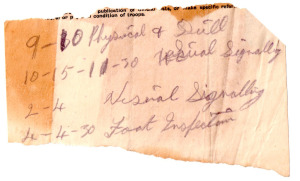 publication or
condition of troops.
9-10 Physical & Drill
10-15-11-30 Visual Signalling
2-4 Visual Signalling
4-4-30 Foot Inspection